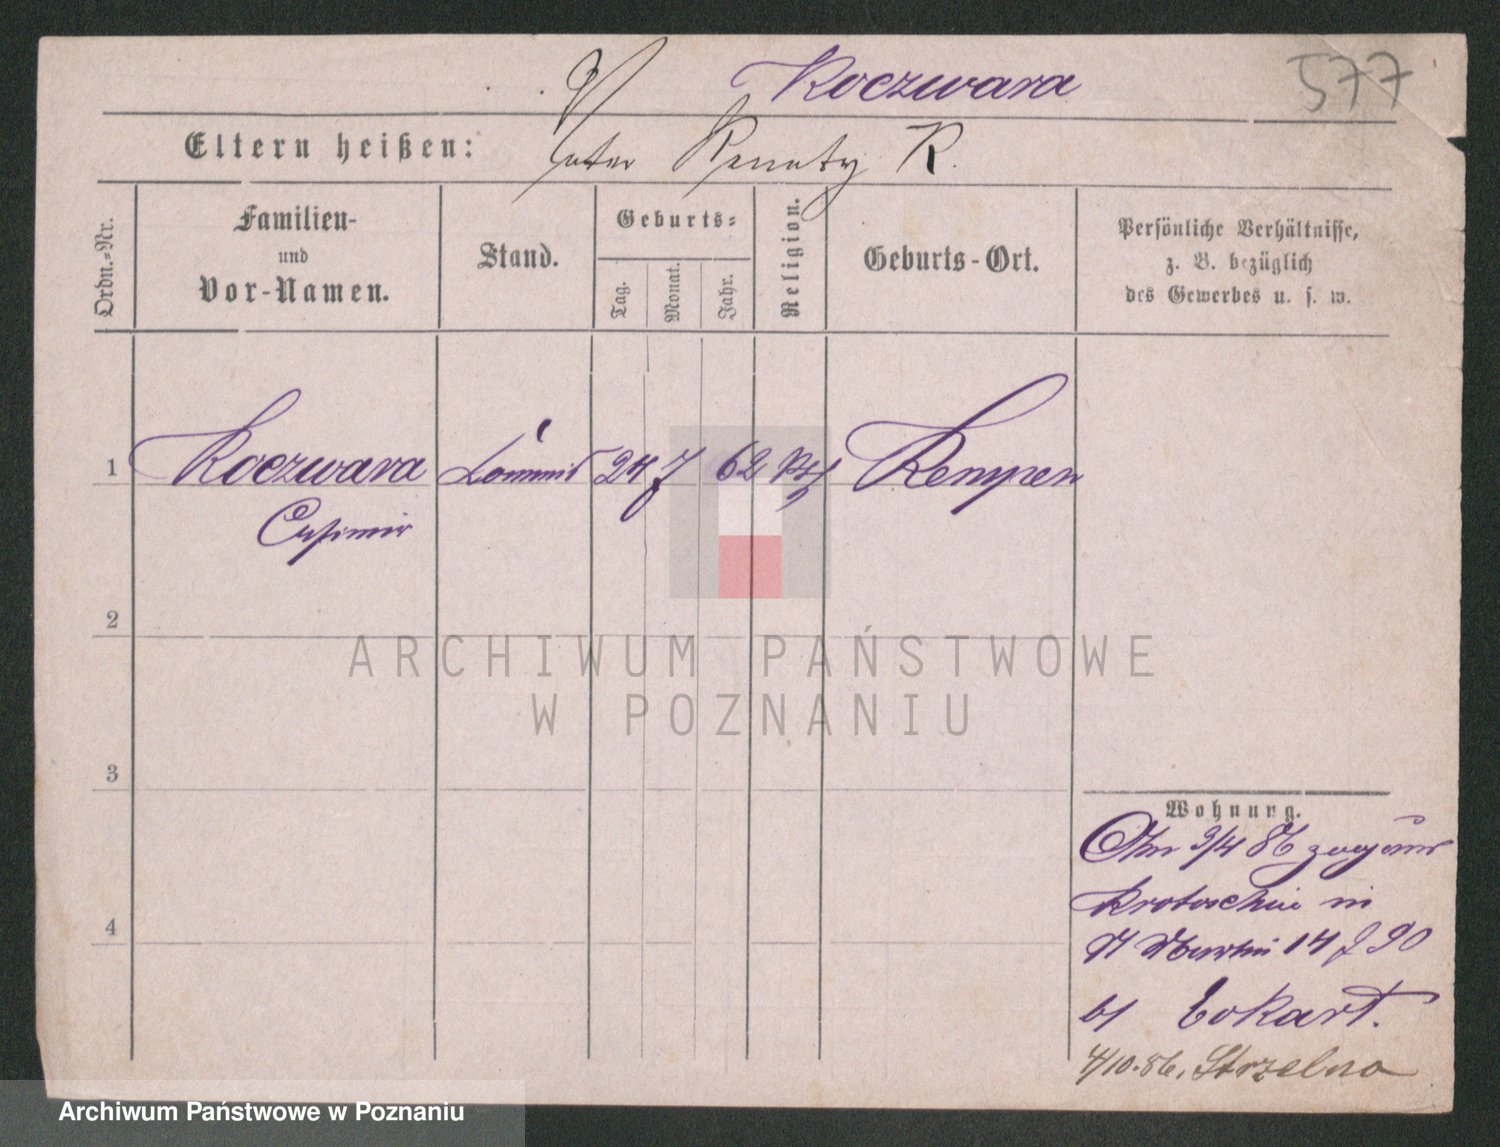 Koczwara 577
Eltern heißen: Vater Renaty K.
Ordn.-Nr.
Familien-
und
Vor-Namen.
Stand.
Geburts-
Tag.
Monat.
Jahr.
Religion.
Geburts-Ort.
Persönliche Verhältnisse,
z. B. bezüglich
des Gewerbes u. s. w.
1 Koczwara 24 7 62 Kempen
Casimir
2
ARCHIWUM PAŃSTWOWE
W POZNANIU
3
Wohnung.
3/4 86
Krotoschin in
St Martin 14 90
Eckart.
4
4/10.86. Strzelno
Archiwum Państwowe w Poznaniu